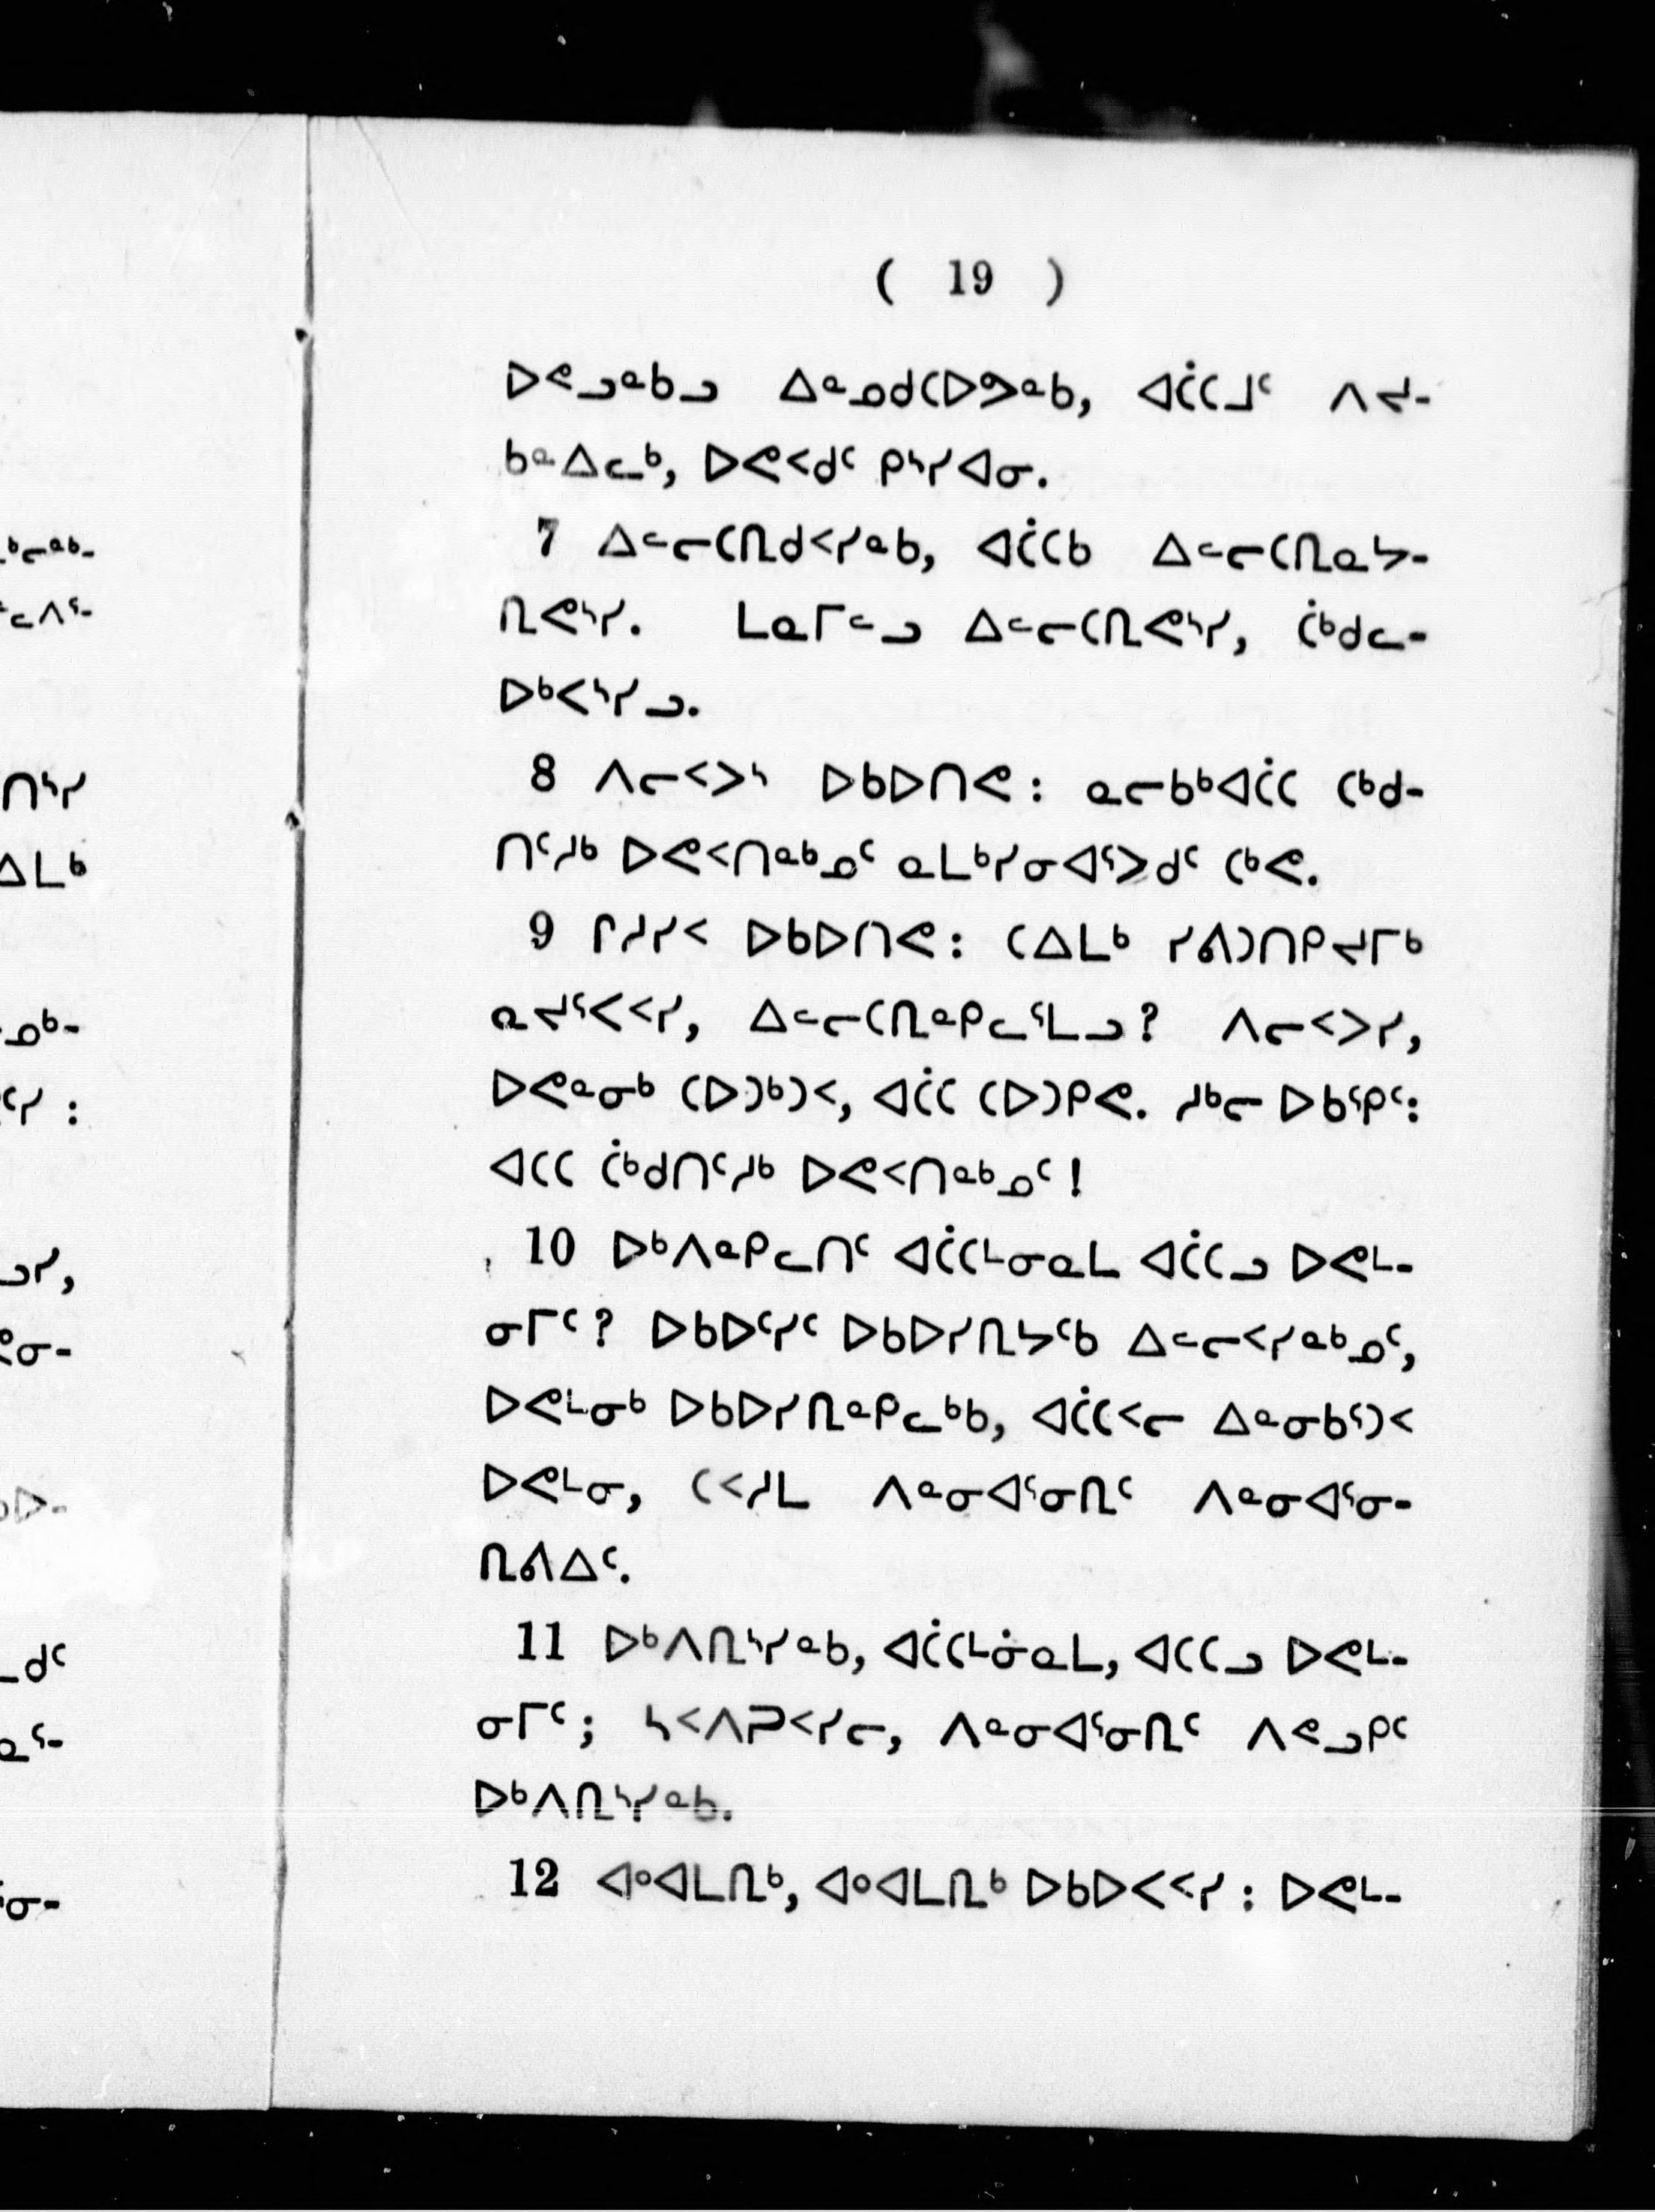 ( 19 )
ᐅᕙᓗᓐᑲᓗ ᐃᓐᓄᑯᑕᐅᕗᓐᑲ, ᐊᑖᑕᒧᑦ ᐱᔪ-
ᑲᓐᐃᓚᒃ, ᐅᕙᑉᑯᑦ ᑭᔅᓯᐊᓂ.
7 ᐃᓪᓕᑕᕆᑯᑉᓯᓐᑲ, ᐊᑖᑕᑲ ᐃᓪᓕᑕᕆᓇᔭ-
ᕆᕙᔅᓯ. ᒪᓇᒥᓪᓗ ᐃᓪᓕᑕᕆᕙᔅᓯ, ᑖᒃᑯᓚ-
ᐅᒃᐸᔅᓯᓗ.
8 ᐱᓕᑉᐳᔅ ᐅᑲᐅᑎᕙ: ᓇᓕᑲᒃᐊᑖᑕ ᑕᒃᑯ-
ᑎᑦᓱᒃ ᐅᕙᑉᑎᓐᒃᓄᑦ ᓇᒪᒃᓯᓂᐊᕐᐳᑯᑦ ᑕᒃᕙ.
9 ᒋᓱᓯᑉ ᐅᑲᐅᑎᕙ: ᑕᐃᒪᒃ ᓯᕕᑐᑎᑭᔪᒥᒃ
ᓇᔪᕐᐸᑉᓯ, ᐃᓪᓕᑕᕆᓐᑭᓚᕐᒪᓗ? ᐱᓕᑉᐳᓯ,
ᐅᕙᓐᓂᒃ ᑕᐅᑐᒃᑐᑉ, ᐊᑖᑕ ᑕᐅᑐᑭᕙ. ᓱᒃᓕ ᐅᑲᕐᑭᑦ:
ᐊᑕᑕ ᑖᒃᑯᑎᑦᓱᒃ ᐅᕙᑉᑎᓐᒃᓄᑦ!
10 ᐅᒃᐱᓐᑭᓚᑎᑦ ᐊᑖᑕᒻᓂᓇᒪ ᐊᑖᑕᓗ ᐅᕙᒻ-
ᓂᒥᑦ? ᐅᑲᐅᑦᓯᑦ ᐅᑲᐅᓯᕆᔭᑦᑲ ᐃᓪᓕᑉᓯᓐᒃᓄᑦ,
ᐅᕙᒻᓂᒃ ᐅᑲᐅᓯᕆᓐᑭᓚᒃᑲ, ᐊᑖᑕᑉᓕ ᐃᓐᓂᑲᕐᑐᑉ
ᐅᕙᒻᓂ, ᑕᑉᓱᒪ ᐱᓐᓂᐊᕐᓂᕆᑦ ᐱᓐᓂᐊᕐᓂ-
ᕆᕕᐃᑦ.
11 ᐅᒃᐱᕆᔅᓯᓐᑲ, ᐊᑖᑕᒻᓃᓇᒪ, ᐊᑕᑕᓗ ᐅᕙᒻ-
ᓂᒥᑦ; ᓴᑉᐱᕈᑉᓯᓕ, ᐱᓐᓂᐊᕐᓂᕆᑦ ᐱᕙᓗᑭᑦ
ᐅᒃᐱᕆᔅᓯᓐᑲ.
12 ᐊᐤᐊᒪᕆᒃ, ᐊᐤᐊᒪᕆᒃ ᐅᑲᐅᐸᑉᓯ: ᐅᕙᒻ-